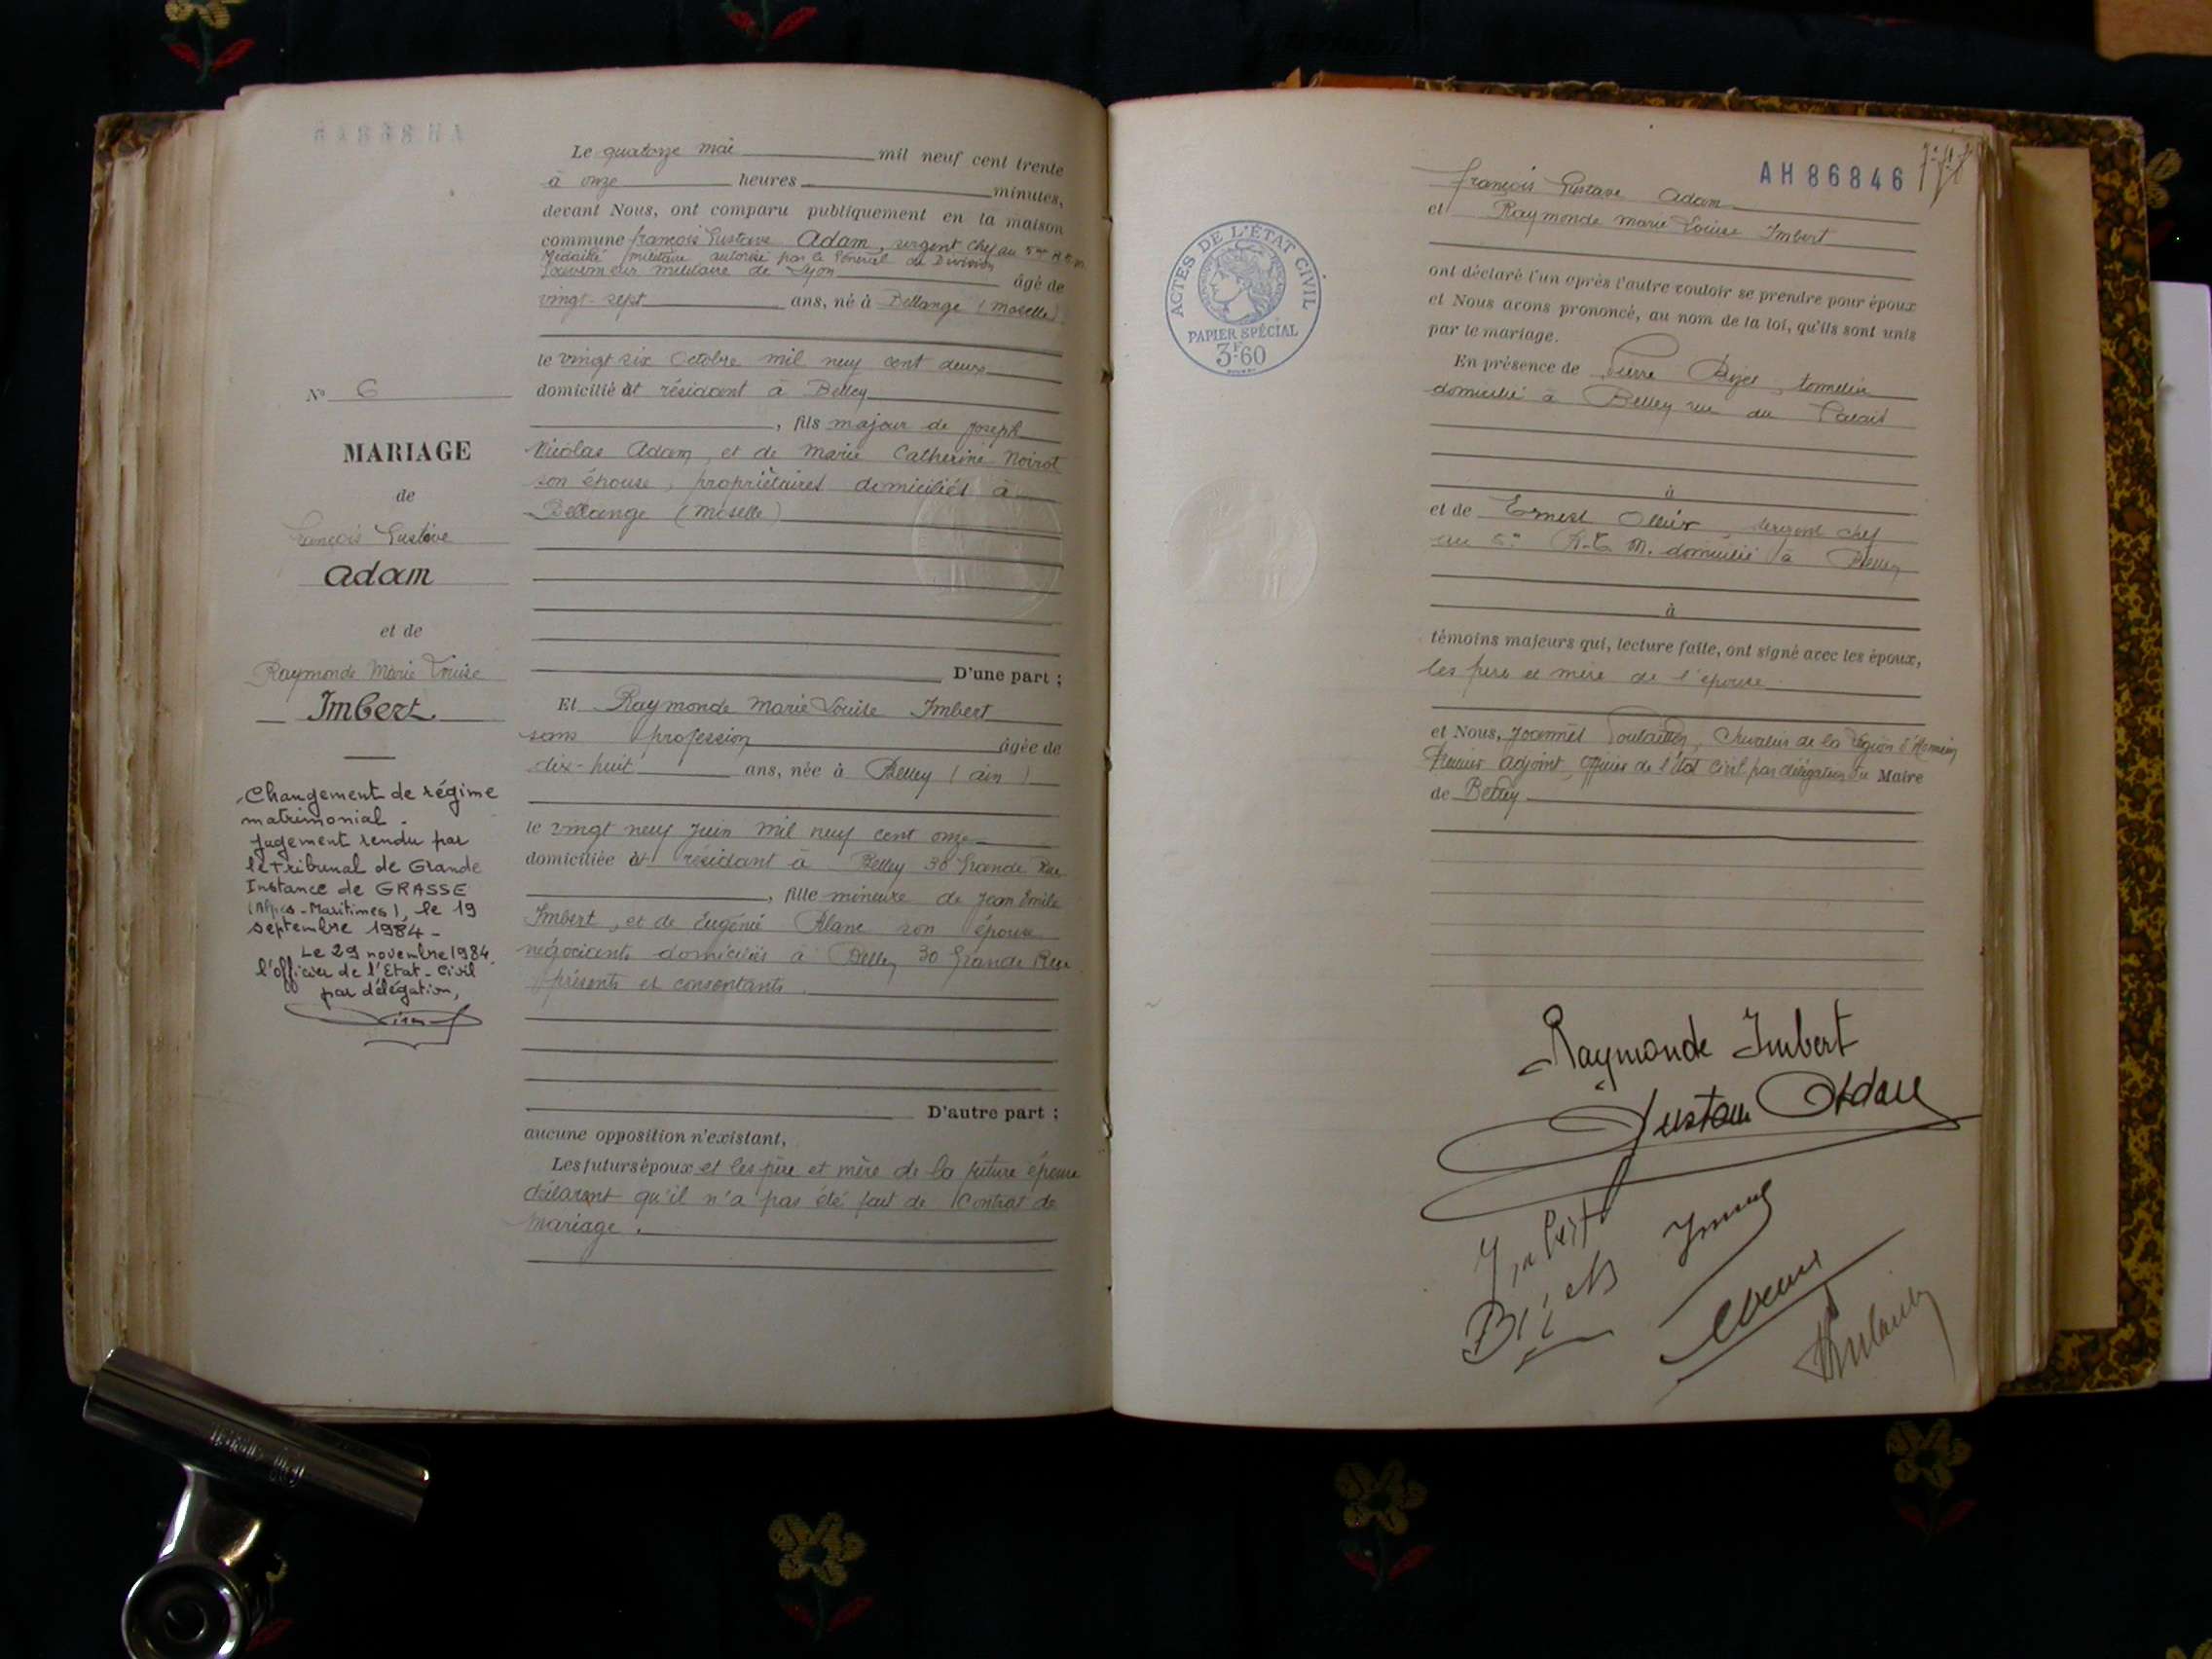 Le quatorze mai mil neuf cent trente
à onze heures minutes,
devant Nous, ont comparu publiquement en la maison
commune françois Gustave Adam, sergent chef au 5me R.T.M.
Médaillé militaire autorisé par le Général de Division
Gouverneur militaire de Lyon âgé de
vingt-sept ans, né à Bellange (Moselle)
le vingt six Octobre mil neuf cent deux
domicilié et résidant à Belley
, fils majeur de Joseph
Nicolas Adam, et de Marie Catherine Noirot
son épouse, propriétaires domiciliés à
Bellange (Moselle)
D'une part ;
Et Raymonde Marie Louise Imbert
sans profession âgée de
dix-huit ans, née à Belley (ain)
le vingt neuf Juin mil neuf cent onze
domiciliée et résidant à Belley 30 Grande Rue
, fille mineure de Jean Emile
Imbert, et de Eugénie Blanc son épouse
négociants domiciliés à Belley 30 Grande Rue
présents et consentants.
D'autre part ;
aucune opposition n'existant,
Les futurs époux et les père et mère de la future épouse
déclarent qu'il n'a pas été fait de Contrat de
Mariage.
No 6
MARIAGE
de
François Gustave
Adam
et de
Raymonde Marie Louise
Imbert.
Changement de régime
matrimonial.
Jugement rendu par
le Tribunal de Grande
Instance de GRASSE
(Alpes-Maritimes), le 19
septembre 1984-
Le 29 novembre 1984.
l'officier de l'Etat-Civil
par délégation,
AH 86846
ACTES DE L'ÉTAT CIVIL
PAPIER SPÉCIAL
3F60
françois Gustave Adam
et Raymonde Marie Louise Imbert
ont déclaré l'un après l'autre vouloir se prendre pour époux
et Nous avons prononcé, au nom de la loi, qu'ils sont unis
par le mariage.
En présence de Pierre
domicilié à Belley rue du Palais
à
et de Ernest sergent chef
au 5e R.T.M. domicilié à Belley
à
témoins majeurs qui, lecture faite, ont signé avec les époux,
les père et mère de l'épouse
et Nous, Joannès Chevalier de la Légion d'Honneur
Premier adjoint, officier de l'état civil par délégation du Maire
de Belley
Raymonde Imbert
Gustave Adam
Imbert